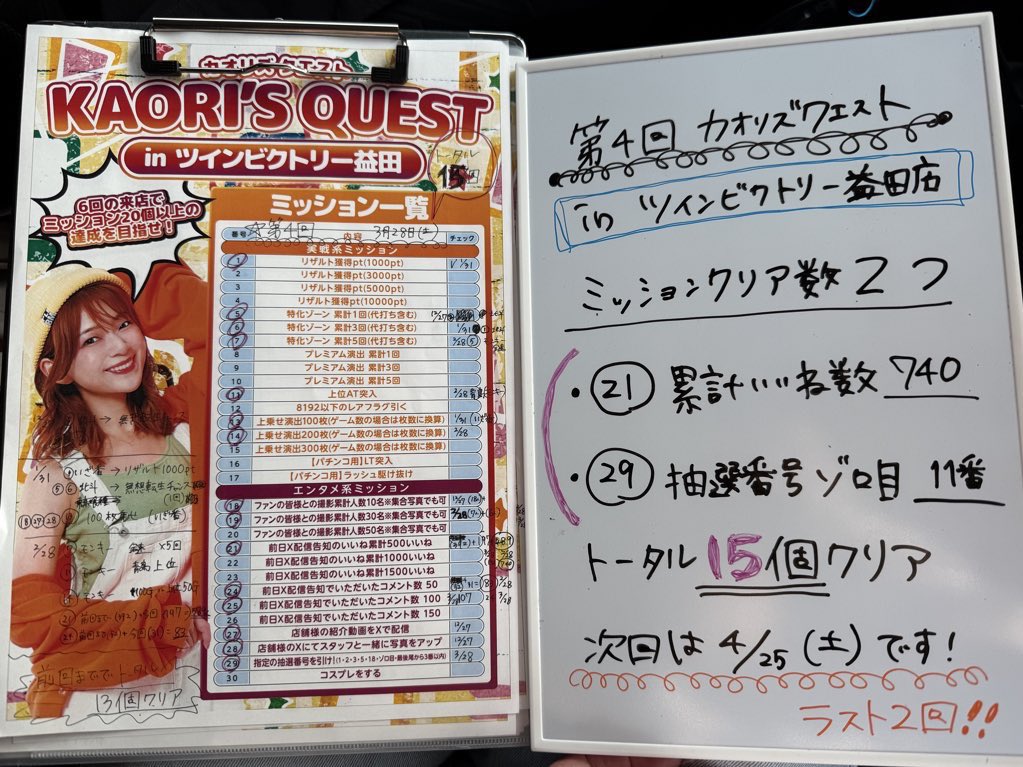 カオリズクエスト
KAORI'S QUEST
in ツインビクトリー益田
トータル
15回
6回の来店で
ミッション20個以上の
達成を目指せ!
ミッション一覧
番号 第4回 内容 3月28日(土) チェック
実戦系ミッション
1 リザルト獲得pt(1000pt) 1/31
2 リザルト獲得pt(3000pt)
3 リザルト獲得pt(5000pt)
4 リザルト獲得pt(10000pt)
5 特化ゾーン 累計1回(代打ち含む) 12/27
6 特化ゾーン 累計3回(代打ち含む) 1/31
7 特化ゾーン 累計5回(代打ち含む) 2/28
8 プレミアム演出 累計1回
9 プレミアム演出 累計3回
10 プレミアム演出 累計5回
11 上位AT突入 2/28
12 8192以下のレアフラグ引く
13 上乗せ演出100枚(ゲーム数の場合は枚数に換算) 1/31
14 上乗せ演出200枚(ゲーム数の場合は枚数に換算) 2/28
15 上乗せ演出300枚(ゲーム数の場合は枚数に換算)
16 【パチンコ用】LT突入
17 【パチンコ用】ラッシュ駆け抜け
エンタメ系ミッション
18 ファンの皆様との撮影累計人数10名※集合写真でも可 12/27
19 ファンの皆様との撮影累計人数30名※集合写真でも可 2/28
20 ファンの皆様との撮影累計人数50名※集合写真でも可
21 前日X配信告知のいいね累計500いいね
22 前日X配信告知のいいね累計1000いいね
23 前日X配信告知のいいね累計1500いいね
24 前日X配信告知でいただいたコメント数 50
25 前日X配信告知でいただいたコメント数 100
26 前日X配信告知でいただいたコメント数 150
27 店舗様の紹介動画をXで配信 12/27
28 店舗様のXにてスタッフと一緒に写真をアップ 12/27
29 指定の抽選番号を引け!(1・2・3・5・18・ゾロ目・最後尾から3番以内) 3/28
30 コスプレをする
1/31
いざ番→リザルト1000pt
⑤⑥北斗→無想転生チャンス
100枚
2/28
エンキー ×5回
上位
前回までトータル
13個クリア
第4回 カオリズクエスト
in ツインビクトリー益田店
ミッションクリア数2つ
・㉑ 累計いいね数 740
・㉙ 抽選番号ゾロ目 11番
トータル15個クリア
次回は4/25(土)です!
ラスト2回!!